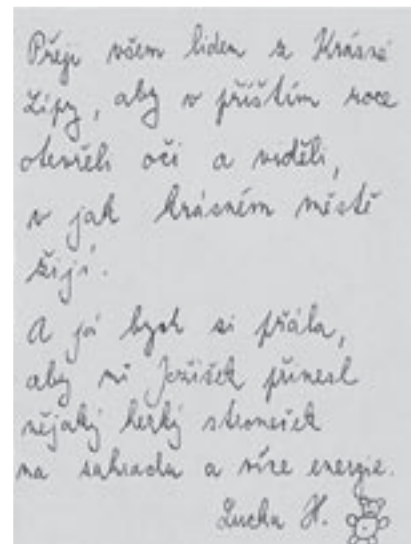 Přeji všem lidem z Krásné
Lípy, aby v příštím roce
otevřeli oči a viděli,
v jak krásném městě
žijí.
A já bych si přála,
aby mi Ježíšek přinesl
nějaký hezký stromeček
na zahradu a více energie.
Lucka H.